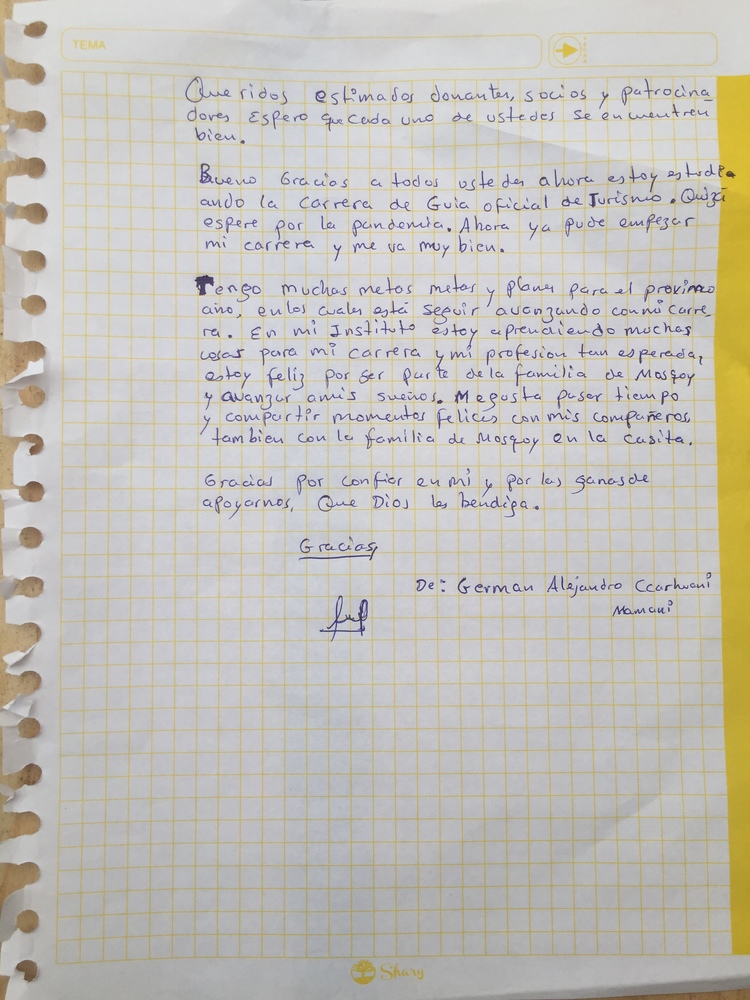 TEMA
Queridos estimados donantes, socios y patrocina
dores Espero que cada uno de ustedes se encuentren
bien.
Bueno Gracias a todos ustedes ahora estoy estudi
ando la carrera de Guía oficial de Turismo. Quizá
espere por la pandemia. Ahora ya pude empezar
mi carrera y me va muy bien.
Tengo muchas metas metas y planes para el proximo
año, en los cuales está seguir avanzando con mi carre
ra. En mi Instituto estoy aprendiendo muchas
cosas para mi carrera y mi profesion tan esperada,
estoy feliz por ser parte de la familia de Mosqoy
y avanzar a mis sueños. Me gusta pasar tiempo
y compartir momentos felices con mis compañeros,
tambien con la familia de Mosqoy en la casita.
Gracias por confiar en mi y por las ganas de
apoyarnos, Que Dios les bendiga.
Gracias,
De: German Alejandro Ccarhuani
Mamani
Shary